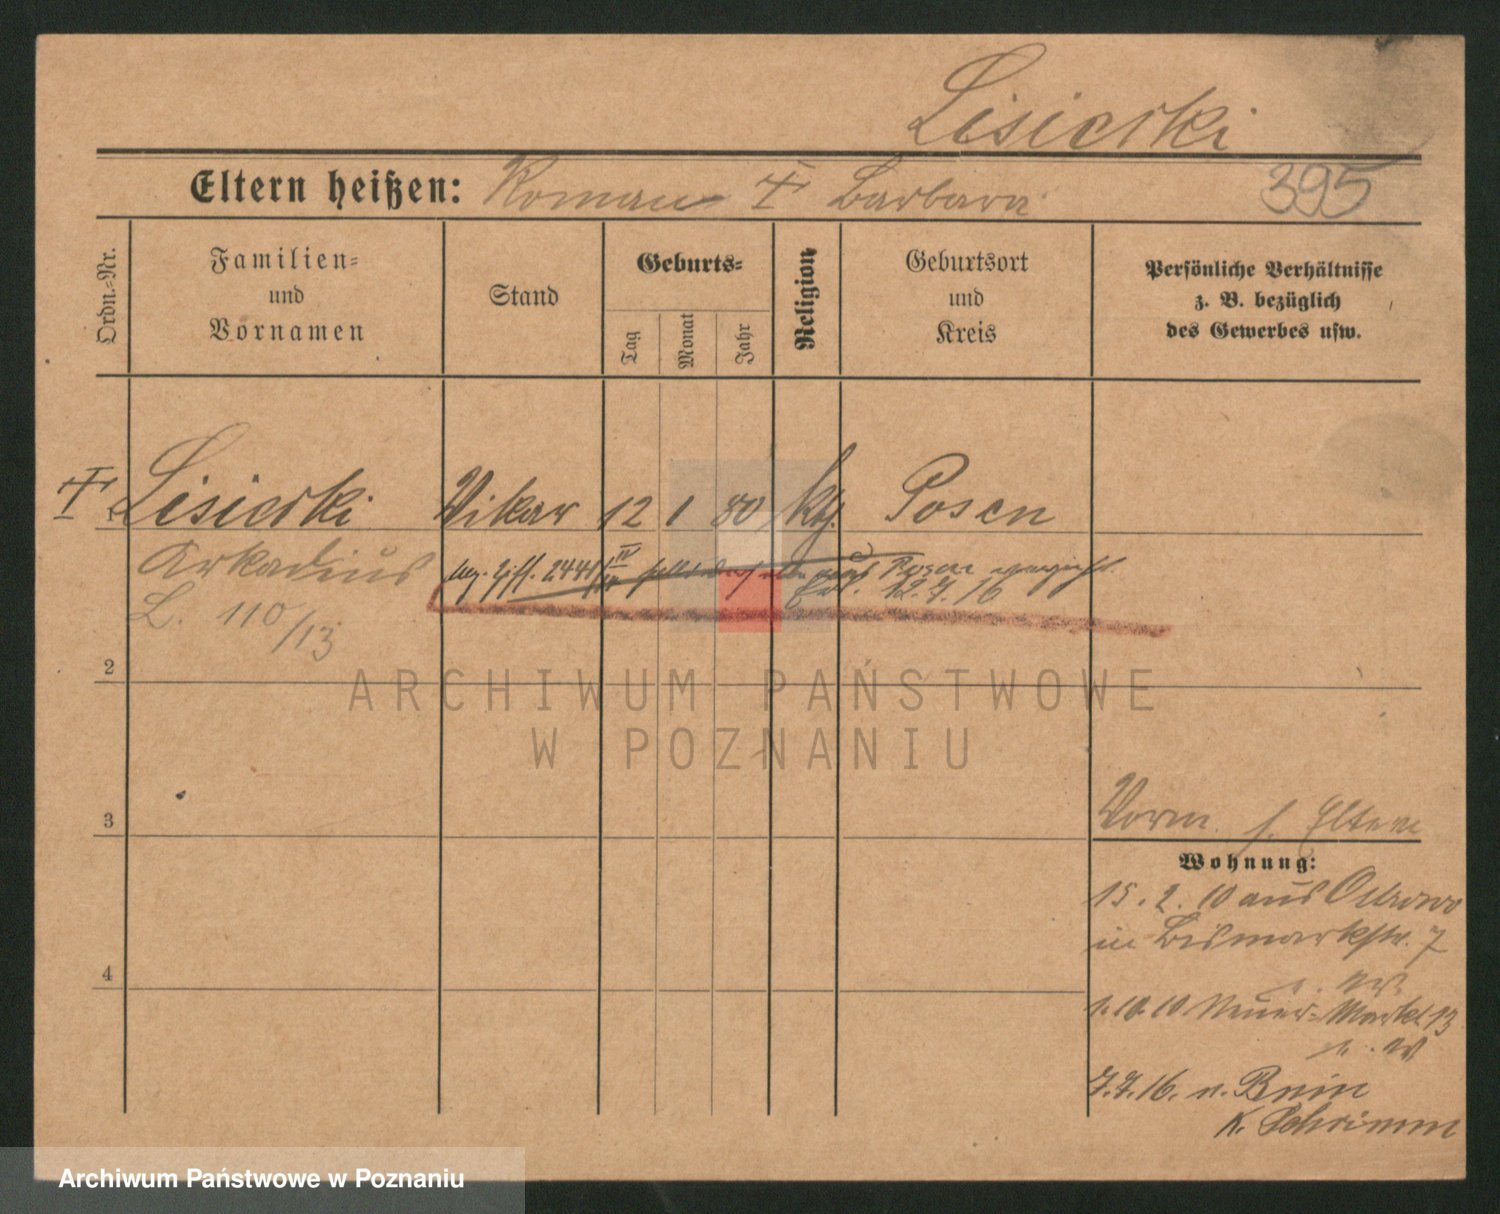 Lisiecki
Eltern heißen: Roman Barbara
395
Ordn.-Nr.
Familien-
und
Vornamen
Stand
Geburts-
Tag
Monat
Jahr
Religion
Geburtsort
und
Kreis
Persönliche Verhältnisse
z. B. bezüglich
des Gewerbes usw.
1 Lisiecki Vikar 12 1 80 kth. Posen
Arkadius
L. 110/13
2441
aus Posen
22.7.16
2
ARCHIWUM PAŃSTWOWE
W POZNANIU
3
Vorm. s. Eltern
Wohnung:
15. 2. 10 aus Ostrowo
in Bismarkstr. 7
4
1.10.10 Neuer-Markt 13
7.7.16. n. Bnin
K. Schrimm
Archiwum Państwowe w Poznaniu